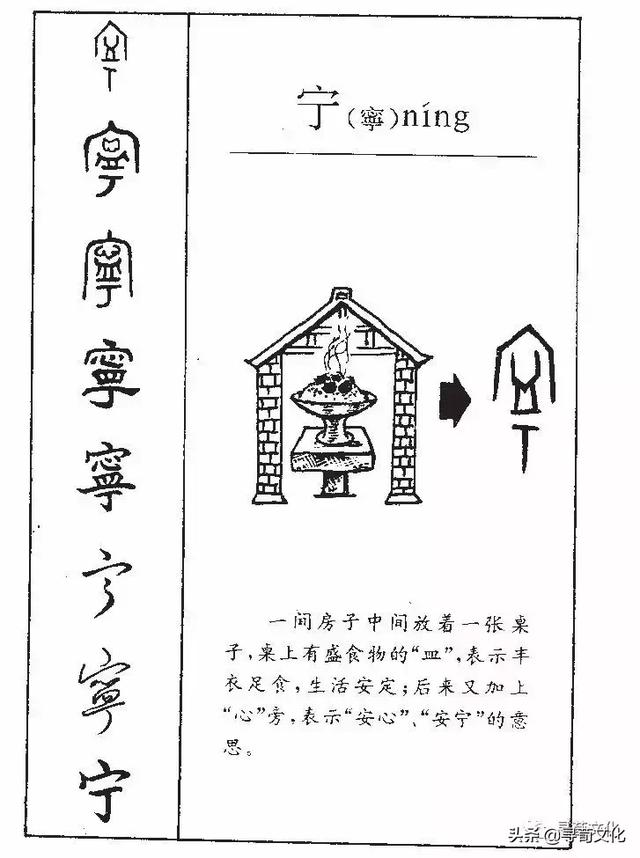 宁(寧)níng
寧
寧
寧
寧
寧
宁
寧
宁
一间房子中间放着一张桌
子,桌上有盛食物的“皿”,表示丰
衣足食,生活安定;后来又加上
“心”旁,表示“安心”、“安宁”的意
思。
头条@寻荀文化